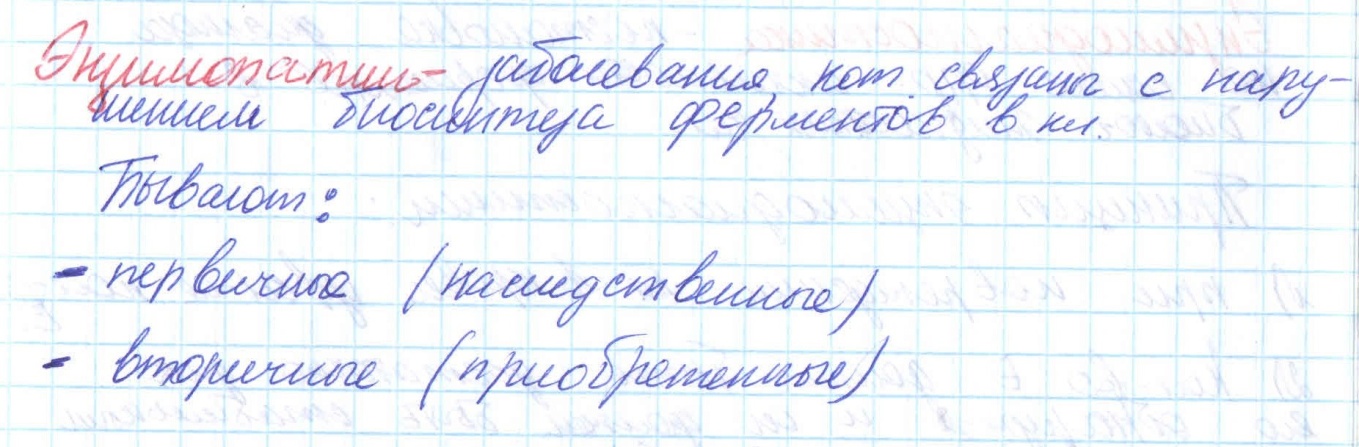 Энзимопатии - заболевания, кот. связаны с нару-
шением биосинтеза ферментов в кл.
Бывают:
- первичные (наследственные)
- вторичные (приобретенные)